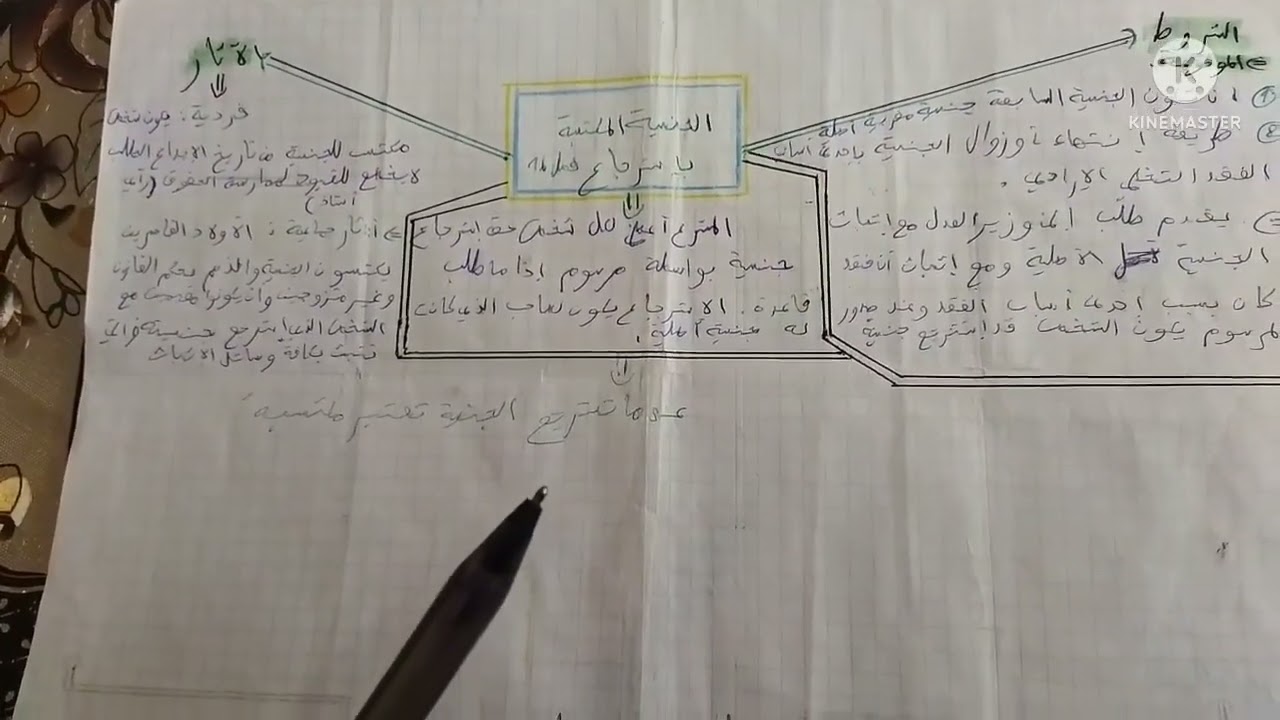 الشروط
① أن تكون الجنسية السابقة جنسية مغربية أصلية.
② طريقة انتهاء أو زوال الجنسية بإحدى أسباب
الفقد التخلي الإرادي.
يقدم طلب إلى وزير العدل مع إثبات
الجنسية الأصلية ومع إثبات أن فقد
كان بسبب إحدى أسباب الفقد وعند صدور
المرسوم يكون الشخص قد استرجع جنسية
الجنسية المكتسبة
باسترجاع
المشرع أعطى لكل شخص حق استرجاع
جنسية بواسطة مرسوم إذا ما طلب
قاعدة. الاسترجاع يكون لصاحب الذي كانت
له جنسية أصلية.
عندما تسترجع الجنسية تعتبر مكتسبة
الآثار
فردية: يكون شخص
مكتسب للجنسية من تاريخ الإيداع الطلب
لا يخضع للقيود لممارسة الحقوق (رأي
أستاذ)
آثار جماعية: الأولاد القاصرين
يكتسبون الجنسية والدهم بحكم القانون
وغير متزوجين وأن يكونوا مقيمين مع
الشخص الذي استرجع جنسية
تثبت بكافة وسائل الإثبات
KINEMASTER